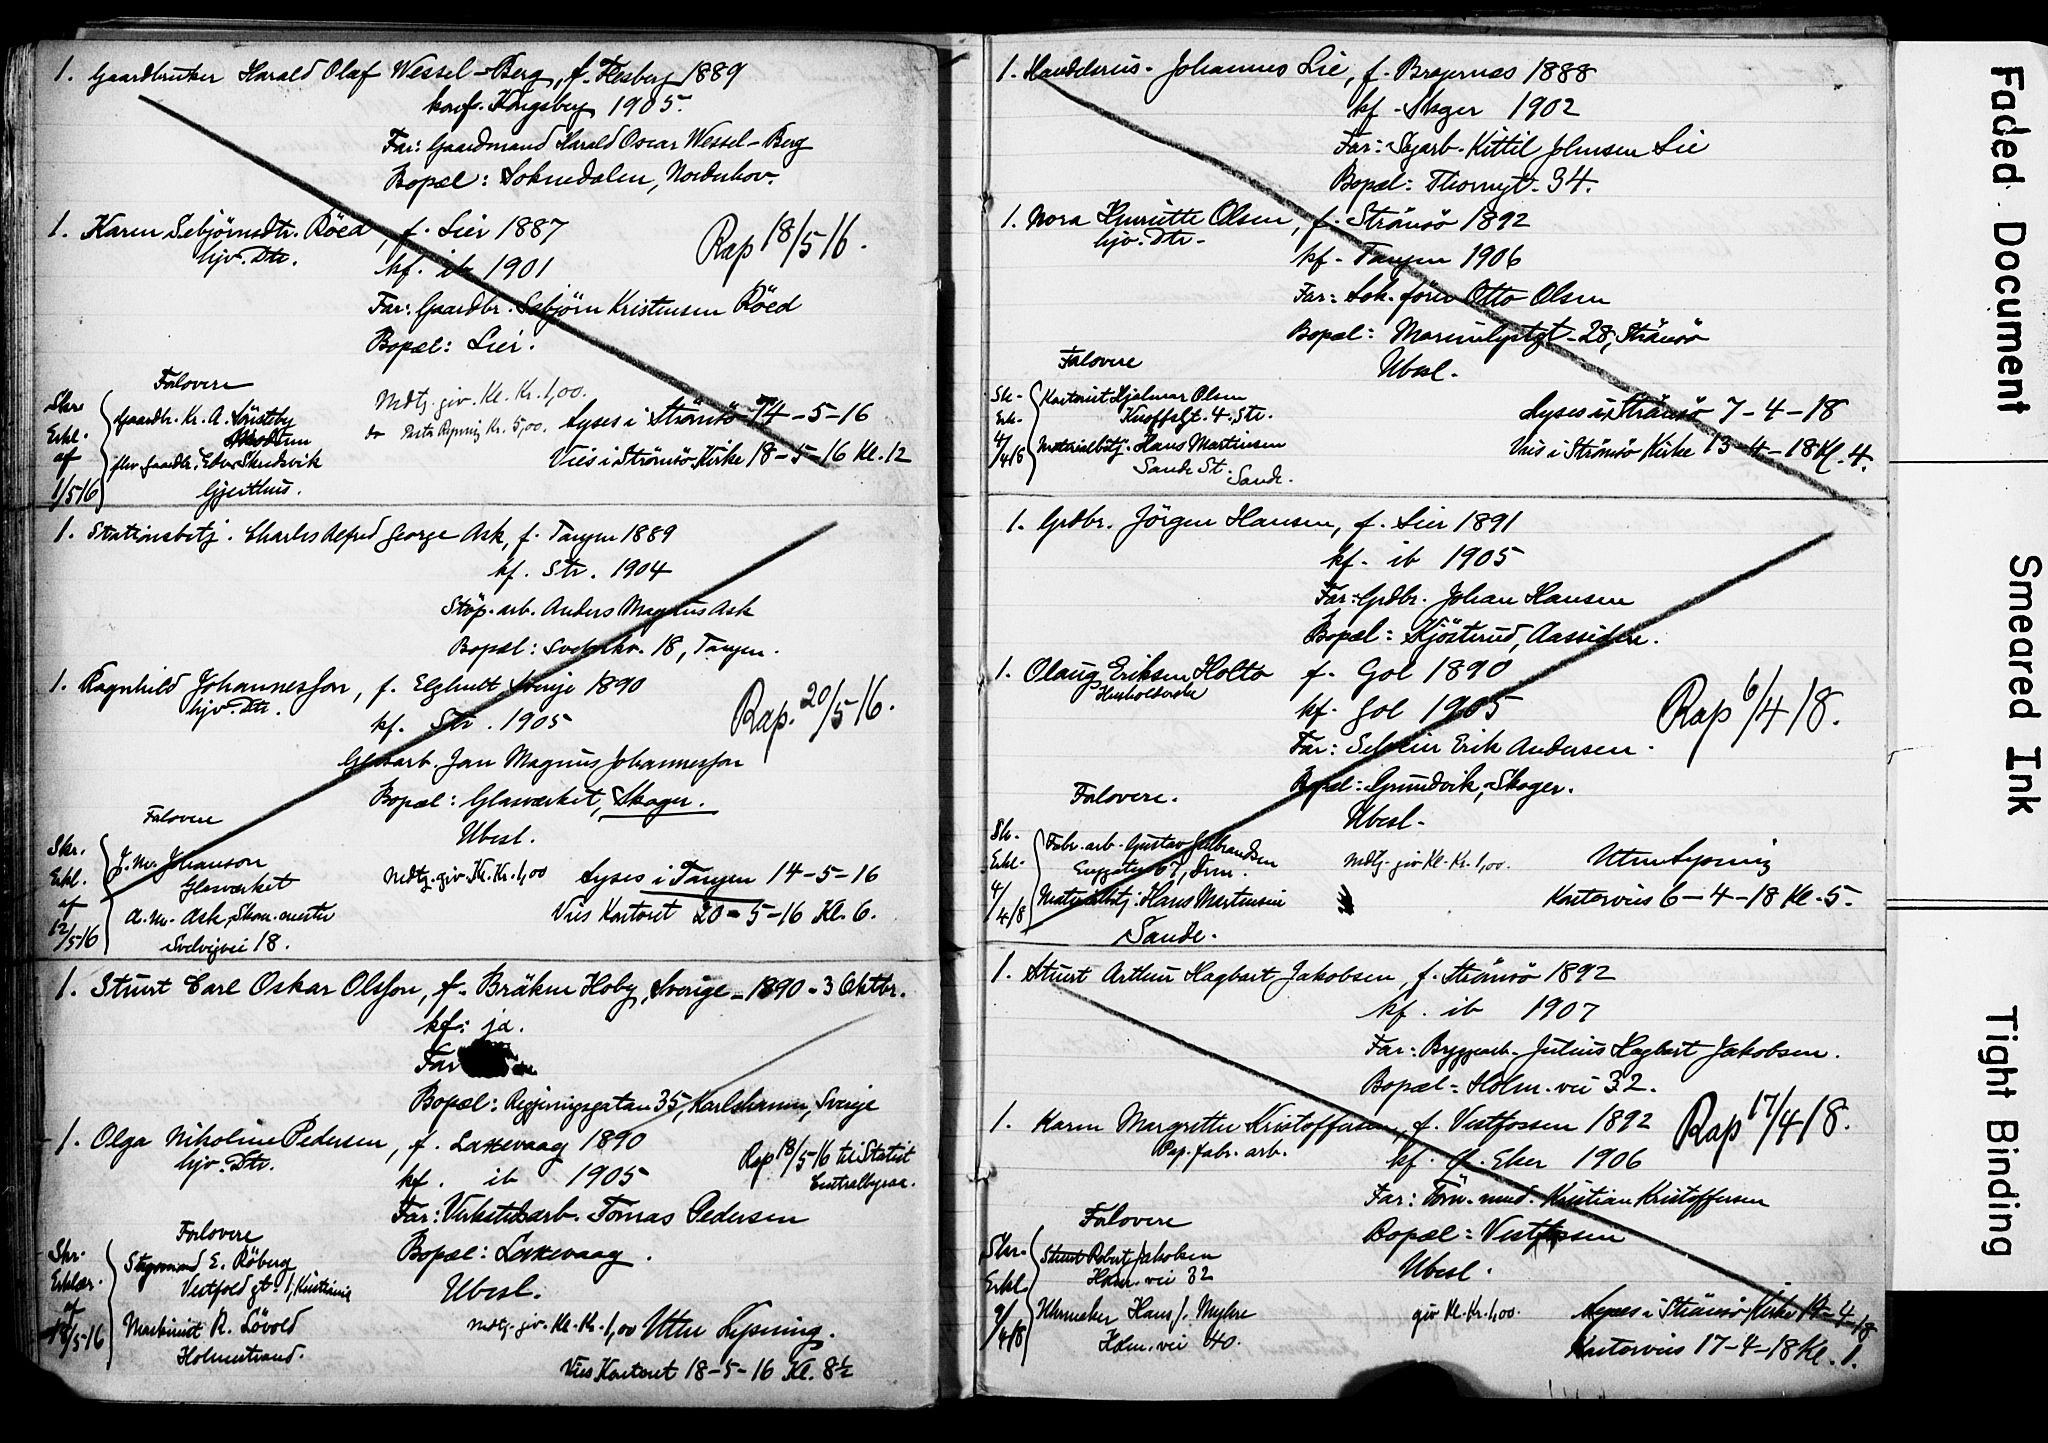 1. Gaardbruker Harald Olaf Wessel-Berg, f. Flesberg 1889
konf. Kongsberg 1905.
Far: Gaardmand Harald Oscar Wessel-Berg
Bopæl: Soknedalen, Norderhov.
1. Karen Sebjörnsdtr. Röed, f. Lier 1887
hjv. Dtr.
Rap 18/5 16.
kf. ib 1901
Far: Gaardbr. Sebjörn Kristensen Röed
Bopæl: Lier.
Forlovere
Mdtj. giv. Kl. Kr. 1,00.
Skr. Erkl. af 1/5 16
Gaardbr. Kr. A.
do Kr. 5,00.
Lyses i Strömsö 14-5-16
Vies i Strömsö Kirke 18-5-16 Kl. 12
Gjerthus.
1. Stationsbetj. Charles Alfred George Ask, f. Tangen 1889
kf. Str. 1904
Stöp. arb. Anders Magnus Ask
Bopæl: 18, Tangen.
1. Ragnhild Johannesson, f. Elghult Sverige 1890
hjv. Dtr.
kf. Str. 1905
Rap. 20/5 16.
Glasarb. Jon Magnus Johannesson
Bopæl: Glasværket, Skoger.
Forlovere
Ubesl.
Skr. Erkl. af 12/5 16
J. M. Johanson
Glasværket
Mdtj. giv. Kl. Kr. 1,00
Lyses i Tangen 14-5-16
A. M. Ask, Skom. mester
Svelvigvei 18.
Vies Kontoret 20-5-16 Kl. 6.
1. Stuert Carl Oskar Olsson, f. Bräkne Hoby, Sverige - 1890 - 3 Oktbr.
kf: ja.
Far
Bopæl: Regjeringsgatan 35, Karlshamn, Sverige
1. Olga Nikoline Pedersen, f. Laxevaag 1890
hjv. Dtr.
Rap 18/5-16 til Statist.
Centralbyraa.
kf. ib 1905
Far: Verkstedarb. Tomas Pedersen
Forlovere
Bopæl: Laxevaag.
Skr. Erklær. af
Styrmand E. Röberg
Vestfold gt. 1, Kristiania
Ubesl.
Maskinist R. Lövold
Holmestrand.
Mdtj. giv. Kl. Kr. 1,00 Uten Lysning.
Vies Kontoret 18-5-16 Kl. 8½
1. Johannes Lie, f. Bragernes 1888
kf. Skoger 1902
Far: Sagarb. Kittil Johnsen Lie
Bopæl: Thornegt. 34.
1. Nora Henriette Olsen, f. Strömsö 1892
hjv. Dtr.
kf. Tangen 1906
Far: Lok. förer Otto Olsen
Bopæl: Marienlystgt. 28, Strömsö
Forlovere
Ubesl.
Sk. Erk. 4/4 18
Kontorist Hjalmar Olsen
Knoffsgt. 4. Str.
Lyses i Strömsö 7-4-18
Materialbetj. Hans Martinsen
Sande St. Sande.
Vies i Strömsö Kirke 13-4-18 Kl. 4.
1. Grdbr. Jörgen Hansen, f. Lier 1891
kf. ib 1905
Far: Grdbr. Johan Hansen
Bopæl: Kjösterud, Aassiden.
1. Olaug Eriksen Holto f. Gol 1890
Husholderske
kf. Gol 1905
Rap 6/4 18.
Far: Selveier Erik Andersen.
Bopæl: Grundvik, Skoger.
Forlovere.
Ubesl.
Sk. Erkl. 4/4 18
Fabr. arb. Gustav Gulbrandsen
Enggaten 67, Drm.
Mdtj. giv Kl. Kr. 1,00.
Uten Lysning
Materialbetj. Hans Martinsen
Sande.
Kontorvies 6-4-18 Kl. 5.
1. Stuert Arthur Hagbart Jakobsen, f. Strömsö 1892
kf. ib 1907
Far: Bryggearb. Julius Hagbart Jakobsen.
Bopæl: Holm. vei 32.
1. Karen Margrethe Kristoffersen, f. Vestfossen 1892
Pap. fabr. arb.
Rap 17/4 18.
kf. Ö. Eker 1906
Far: Töm. mand. Kristian Kristoffersen
Bopæl: Vestfossen
Forlovere
Ubesl.
Skr. Erkl. 9/4 18
Stuert Robert Jakobsen
Holm. vei 32
Uhrmaker Hans J. Myhre
Holm. vei 40.
giv Kl. Kr. 1,00.
Lyses i Strömsö Kirke 14-4-18
Kontorvies 17-4-18 Kl. 1.
Faded Document
Smeared Ink
Tight Binding